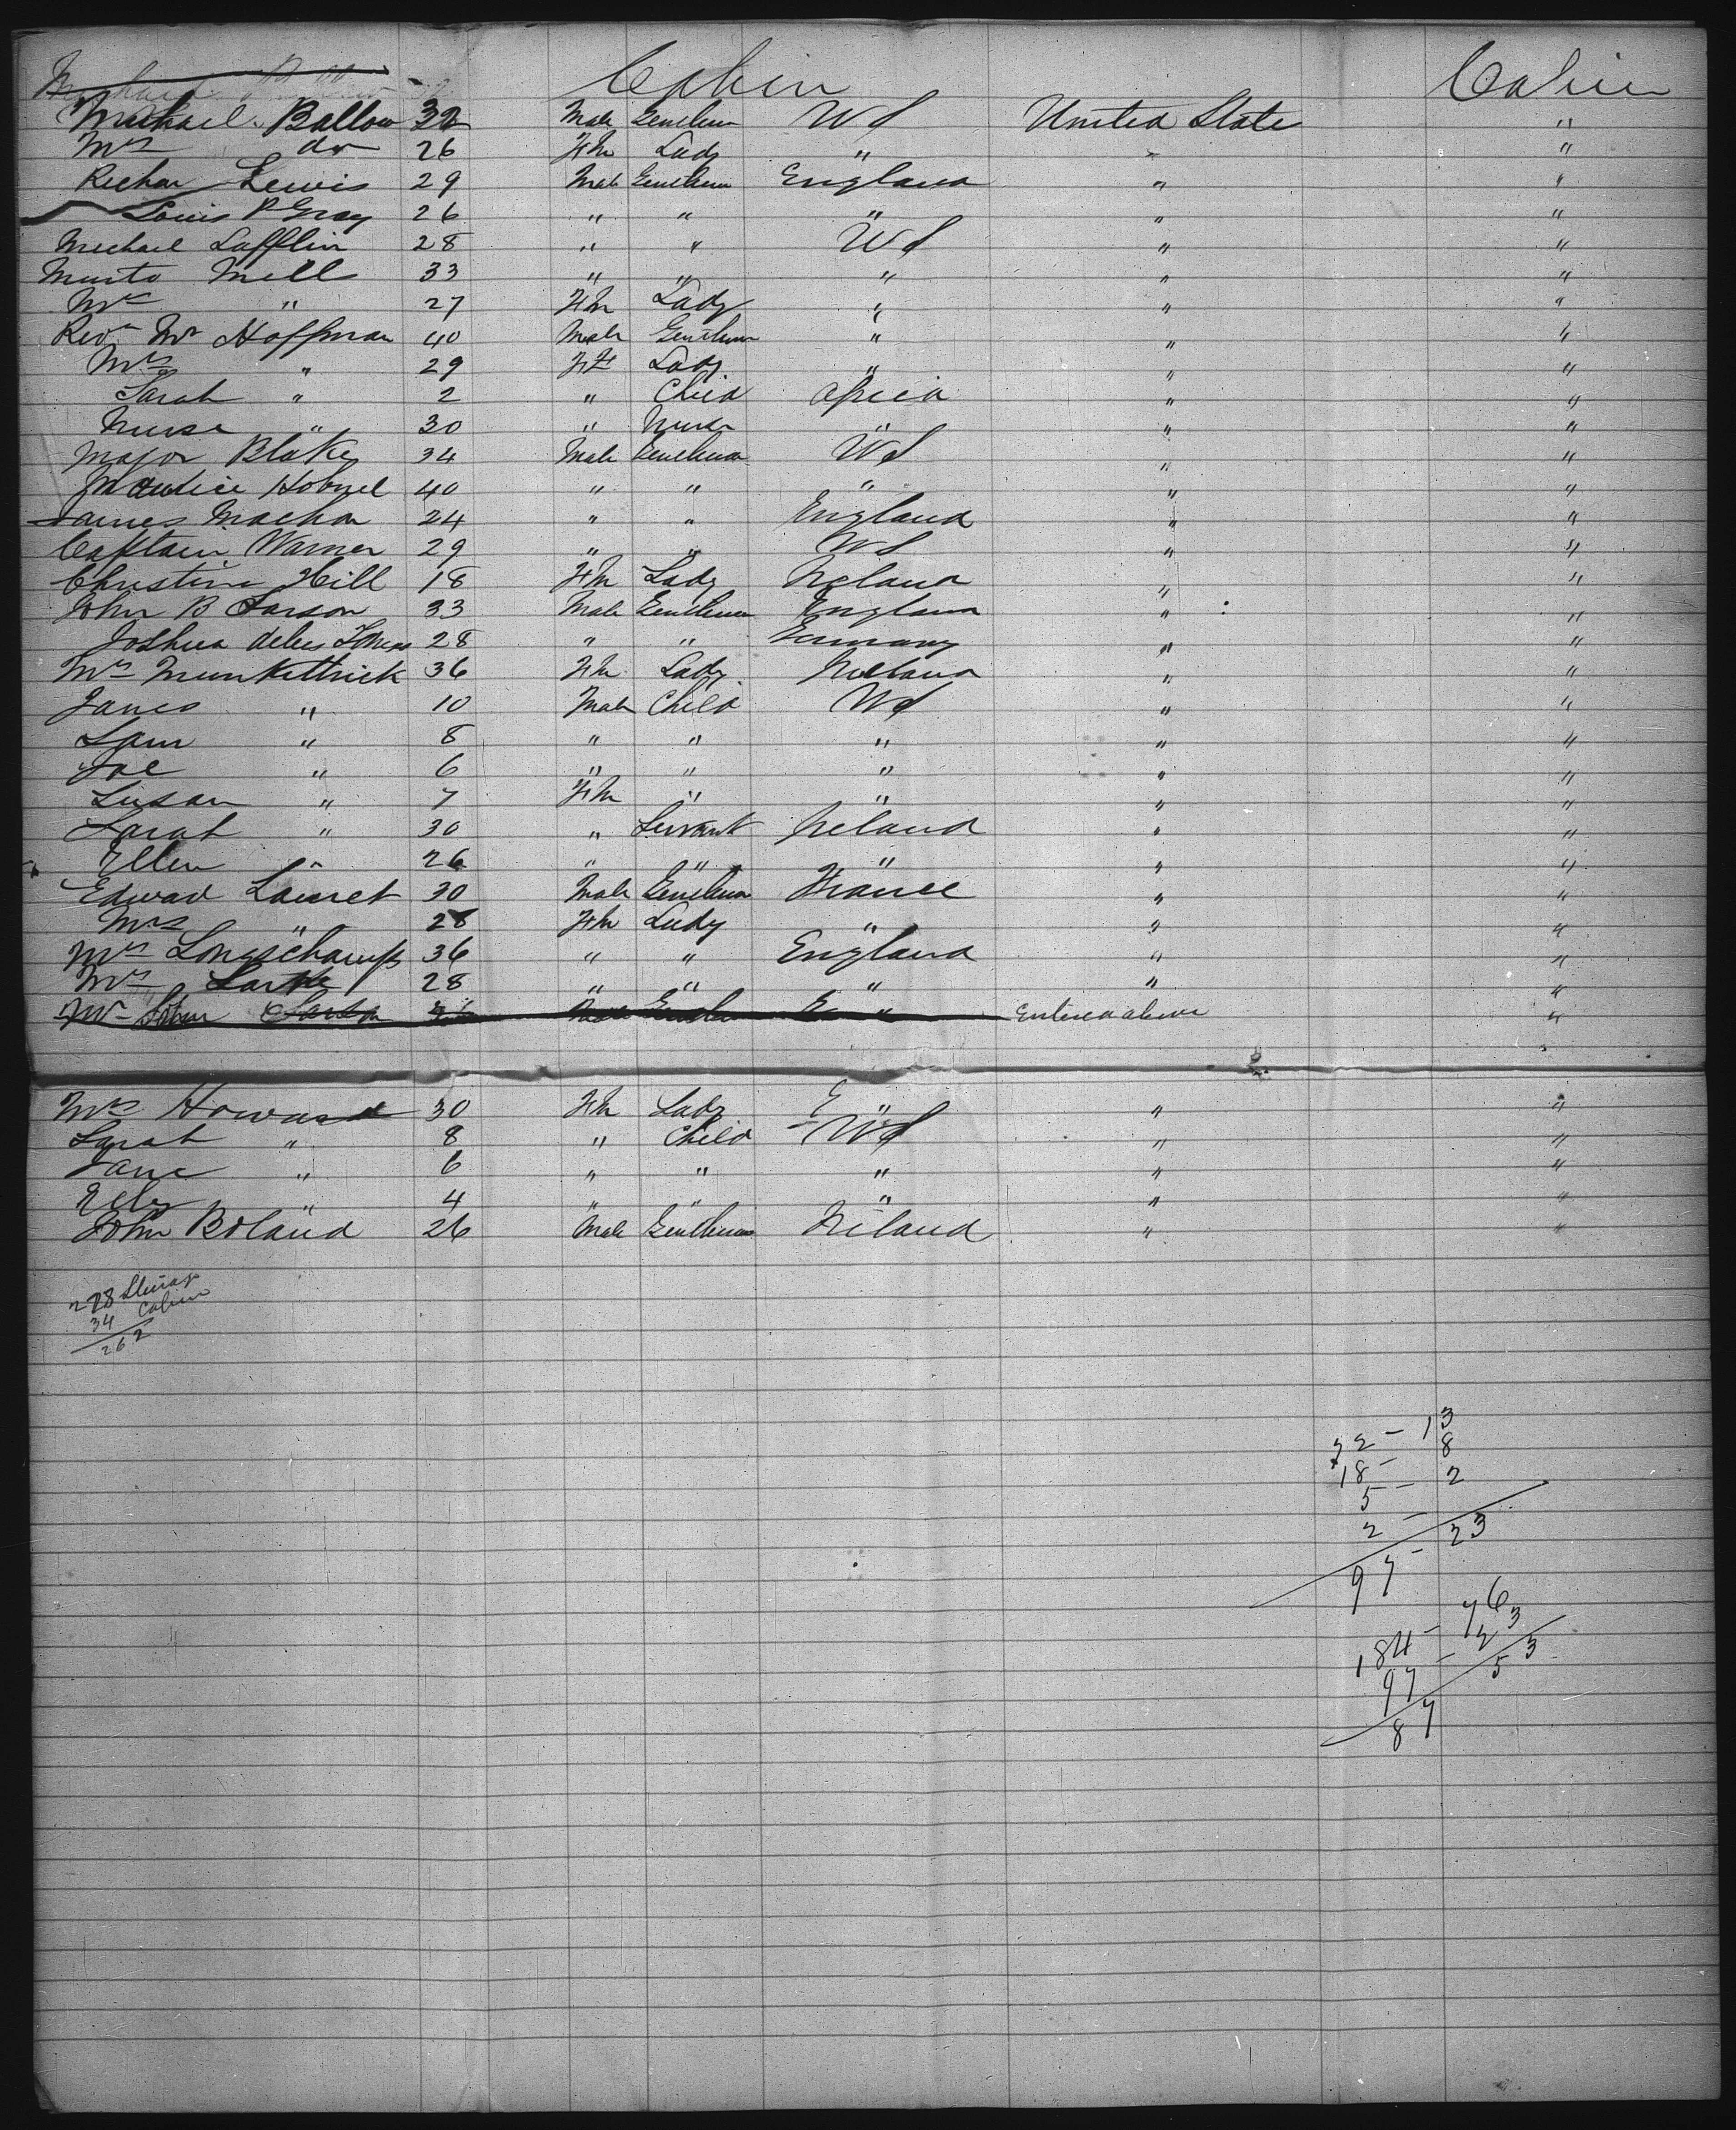 Cabin Cabin
Michael Ballow 32 Male Gentlem US United State "
Mrs do 26 Fm Lady " " "
Richar Lewis 29 Male Gentlem England " "
Louis P Gray 26 " " " " "
Michael Lafflin 28 " " US " "
Mill 33 " " " " "
Mrs " 27 Fm Lady " " "
Revd Mr Hoffman 40 Male Gentlem " " "
Mrs " 29 Fm Lady " " "
Sarah " 2 " Child Africa " "
Nurse " 30 " Nurse " " "
Major Blake 34 Male Gentleman US " "
40 " " " " "
James Machon 24 " " England " "
Captain Warner 29 " " US " "
Christine Hill 18 Fm Lady Ireland " "
John B Sarson 33 Male Gentlem England " "
Joshua 28 " " Germany " "
Mrs Munkittrick 36 Fm Lady Ireland " "
James " 10 Male Child US " "
Sam " 8 " " " " "
Joe " 6 " " " " "
Susan " 7 Fm " " " "
Sarah " 30 " Servant Ireland " "
Ellen " 26 " " " " "
Edward Lauret 30 Male Gentleman France " "
Mrs " 28 Fm Lady " " "
Mrs Longschamps 36 " " England " "
Mrs 28 " " " " "
Mr John Sarson " Entered above "
Mrs Howard 30 Fm Lady E " " "
Sarah " 8 " Child US " "
Jane " 6 " " " " "
" 4 " " " " "
John Boland 26 Male Gentleman Ireland " "
228 Steerage
34 Cabin
262
72 - 13
18 - 8
5 - 2
2 -
97 - 23
184 - 76
97 - 23
87 53